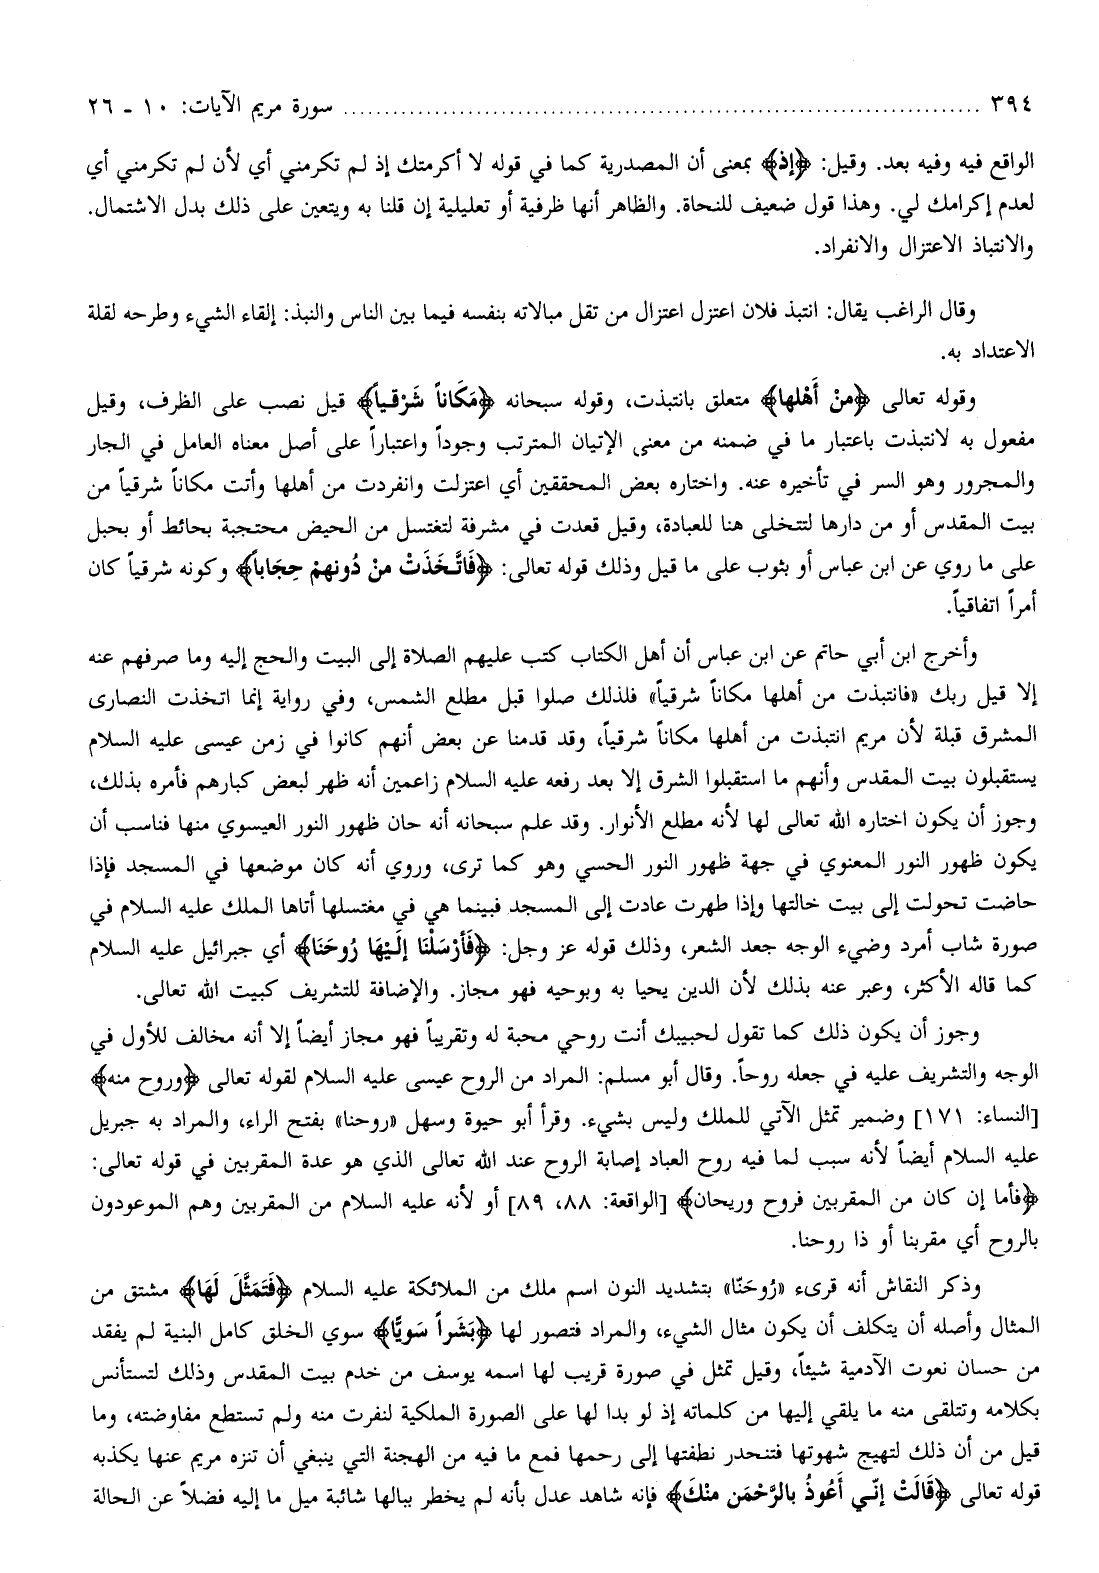 ٣٩٤ ........................................................................ سورة مريم الآيات: ١٠ ـ ٢٦
الواقع فيه وفيه بعد. وقيل: ﴿إذ﴾ بمعنى أن المصدرية كما في قوله لا أكرمتك إذ لم تكرمني أي لأن لم تكرمني أي
لعدم إكرامك لي. وهذا قول ضعيف للنحاة. والظاهر أنها ظرفية أو تعليلية إن قلنا به ويتعين على ذلك بدل الاشتمال.
والانتباذ الاعتزال والانفراد.
وقال الراغب يقال: انتبذ فلان اعتزل اعتزال من تقل مبالاته بنفسه فيما بين الناس والنبذ: إلقاء الشيء وطرحه لقلة
الاعتداد به.
وقوله تعالى ﴿منْ أَهْلها﴾ متعلق بانتبذت، وقوله سبحانه ﴿مَكَاناً شَرْقياً﴾ قيل نصب على الظرف، وقيل
مفعول به لانتبذت باعتبار ما في ضمنه من معنى الإتيان المترتب وجوداً واعتباراً على أصل معناه العامل في الجار
والمجرور وهو السر في تأخيره عنه. واختاره بعض المحققين أي اعتزلت وانفردت من أهلها وأتت مكاناً شرقياً من
بيت المقدس أو من دارها لتتخلى هنا للعبادة، وقيل قعدت في مشرفة لتغتسل من الحيض محتجبة بحائط أو بحبل
على ما روي عن ابن عباس أو بثوب على ما قيل وذلك قوله تعالى: ﴿فَاتَّخَذَتْ منْ دُونهمْ حِجَاباً﴾ وكونه شرقياً كان
أمراً اتفاقياً.
وأخرج ابن أبي حاتم عن ابن عباس أن أهل الكتاب كتب عليهم الصلاة إلى البيت والحج إليه وما صرفهم عنه
إلا قيل ربك «فانتبذت من أهلها مكاناً شرقياً» فلذلك صلوا قبل مطلع الشمس، وفي رواية إنما اتخذت النصارى
المشرق قبلة لأن مريم انتبذت من أهلها مكاناً شرقياً، وقد قدمنا عن بعض أنهم كانوا في زمن عيسى عليه السلام
يستقبلون بيت المقدس وأنهم ما استقبلوا الشرق إلا بعد رفعه عليه السلام زاعمين أنه ظهر لبعض كبارهم فأمره بذلك،
وجوز أن يكون اختاره الله تعالى لها لأنه مطلع الأنوار. وقد علم سبحانه أنه حان ظهور النور العيسوي منها فناسب أن
يكون ظهور النور المعنوي في جهة ظهور النور الحسي وهو كما ترى، وروي أنه كان موضعها في المسجد فإذا
حاضت تحولت إلى بيت خالتها وإذا طهرت عادت إلى المسجد فبينما هي في مغتسلها أتاها الملك عليه السلام في
صورة شاب أمرد وضيء الوجه جعد الشعر، وذلك قوله عز وجل: ﴿فَأَرْسَلْنَا إِلَيْهَا رُوحَنَا﴾ أي جبرائيل عليه السلام
كما قاله الأكثر، وعبر عنه بذلك لأن الدين يحيا به وبوحيه فهو مجاز. والإضافة للتشريف كبيت الله تعالى.
وجوز أن يكون ذلك كما تقول لحبيبك أنت روحي محبة له وتقريباً فهو مجاز أيضاً إلا أنه مخالف للأول في
الوجه والتشريف عليه في جعله روحاً. وقال أبو مسلم: المراد من الروح عيسى عليه السلام لقوله تعالى ﴿وروح منه﴾
[النساء: ١٧١] وضمير تمثل الآتي للملك وليس بشيء. وقرأ أبو حيوة وسهل «روحنا» بفتح الراء، والمراد به جبريل
عليه السلام أيضاً لأنه سبب لما فيه روح العباد إصابة الروح عند الله تعالى الذي هو عدة المقربين في قوله تعالى:
﴿فأما إن كان من المقربين فروح وريحان﴾ [الواقعة: ٨٨، ٨٩] أو لأنه عليه السلام من المقربين وهم الموعودون
بالروح أي مقربنا أو ذا روحنا.
وذكر النقاش أنه قرىء «رُوحَنّا» بتشديد النون اسم ملك من الملائكة عليه السلام ﴿فَتَمَثَّلَ لَهَا﴾ مشتق من
المثال وأصله أن يتكلف أن يكون مثال الشيء، والمراد فتصور لها ﴿بَشَراً سَويًّا﴾ سوي الخلق كامل البنية لم يفقد
من حسان نعوت الآدمية شيئاً، وقيل تمثل في صورة قريب لها اسمه يوسف من خدم بيت المقدس وذلك لتستأنس
بكلامه وتتلقى منه ما يلقي إليها من كلماته إذ لو بدا لها على الصورة الملكية لنفرت منه ولم تستطع مفاوضته، وما
قيل من أن ذلك لتهيج شهوتها فتنحدر نطفتها إلى رحمها فمع ما فيه من الهجنة التي ينبغي أن تنزه مريم عنها يكذبه
قوله تعالى ﴿قَالَتْ إنّي أَعُوذُ بالرَّحْمَن منْكَ﴾ فإنه شاهد عدل بأنه لم يخطر ببالها شائبة ميل ما إليه فضلاً عن الحالة